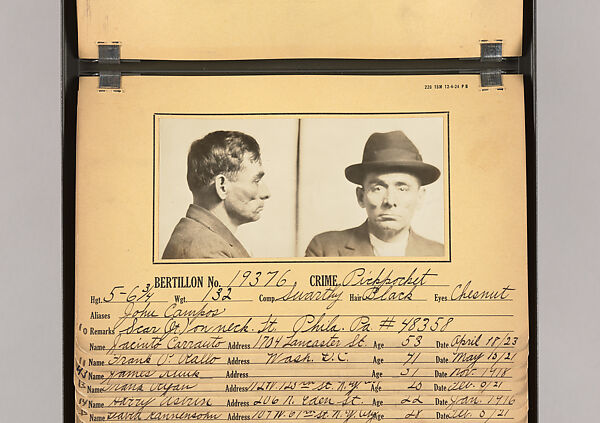 220 15M 12-4-24 P B
BERTILLON No. 19376 CRIME Pickpocket
Hgt. 5-6 3/4 Wgt. 132 Comp. Swarthy Hair Black Eyes Chesnut
Aliases John Campos
Remarks Scar on neck. Phila. Pa # 48358
Name Jacinto Carrauto Address 1704 Lancaster St. Age 53 Date April 18/23
Name Frank Address Wash. D.C. Age 41 Date May 10/21
Name James Age 31 Date Nov. 1918
Name Frank Ryan Address St. N.W. Age Date Dec. 9/21
Name Harry Address 206 N. Eden St. Age 22 Date Jan. 1916
Name David Address 107 W. 61st St. N.Y. City Age 28 Date